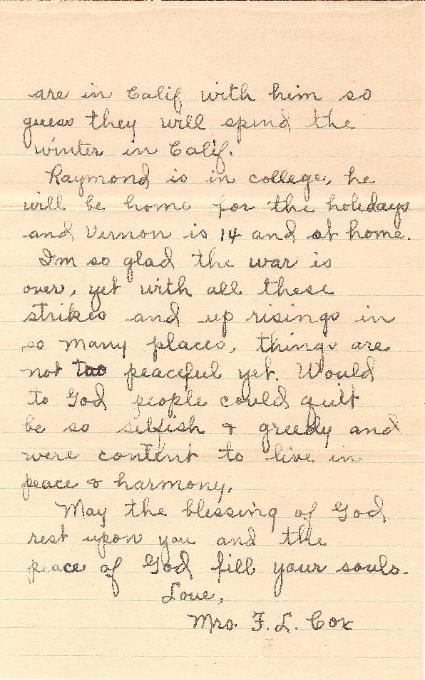 are in Calif with him so
guess they will spend the
winter in Calif.
Raymond is in college, he
will be home for the holidays
and Vernon is 14 and at home.
I'm so glad the war is
over, yet with all these
strikes and up risings in
so many places, things are
not too peaceful yet. Would
to God people could quit
be so selfish & greedy and
were content to live in
peace & harmony.
May the blessing of God
rest upon you and the
peace of God fill your souls.
Love,
Mrs. F. L. Cox